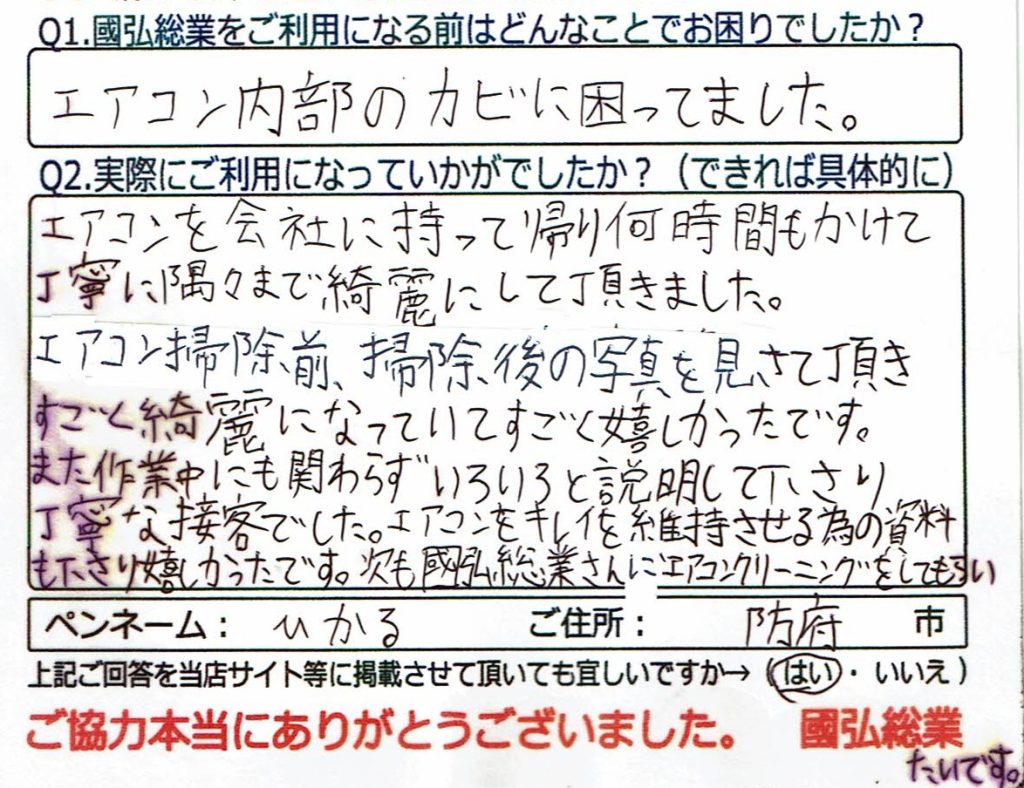 Q1.國弘総業をご利用になる前はどんなことでお困りでしたか？
エアコン内部のカビに困ってました。
Q2.実際にご利用になっていかがでしたか？（できれば具体的に）
エアコンを会社に持って帰り何時間もかけて
丁寧に隅々まで綺麗にして頂きました。
エアコン掃除前、掃除後の写真を見させて頂き
すごく綺麗になっていてすごく嬉しかったです。
また作業中にも関わらずいろいろと説明して下さり
丁寧な接客でした。エアコンをキレイを維持させる為の資料
も下さり嬉しかったです。次も國弘総業さんにエアコンクリーニングをしてもらい
たいです。
ペンネーム： ひかる ご住所： 防府 市
上記ご回答を当店サイト等に掲載させて頂いても宜しいですか→（はい・いいえ）
ご協力本当にありがとうございました。 國弘総業